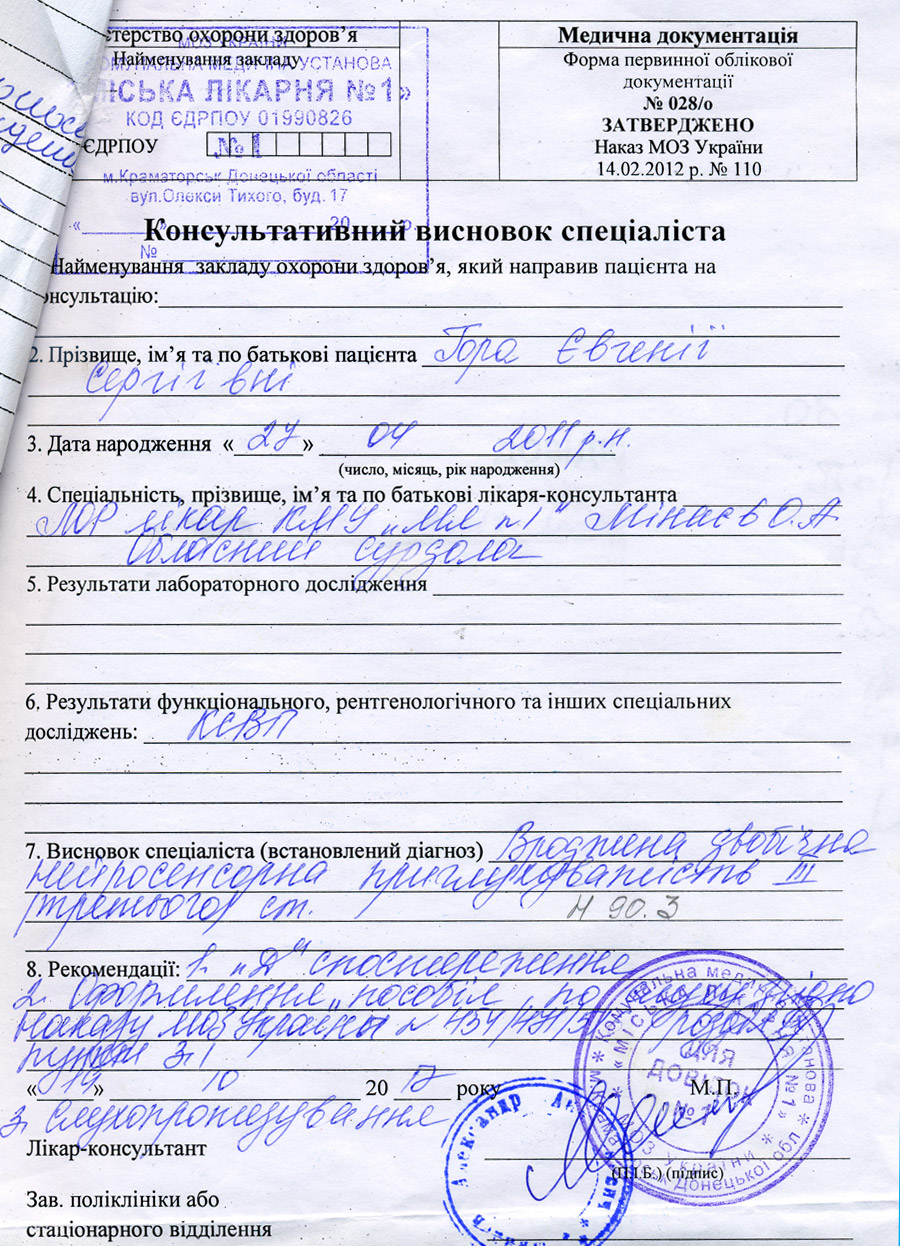 терство охорони здоров’я
Найменування закладу
МОЗ УКРАЇНИ
КОМУНАЛЬНА МЕДИЧНА УСТАНОВА
МІСЬКА ЛІКАРНЯ №1»
КОД ЄДРПОУ 01990826
ЄДРПОУ
№1
м.Краматорськ Донецької області
вул.Олекси Тихого, буд. 17
« » 20 р.
№
Медична документація
Форма первинної облікової
документації
№ 028/о
ЗАТВЕРДЖЕНО
Наказ МОЗ України
14.02.2012 р. № 110
Консультативний висновок спеціаліста
Найменування закладу охорони здоров’я, який направив пацієнта на
онсультацію:
2. Прізвище, ім’я та по батькові пацієнта Гора Євгенії
Сергіївні
3. Дата народження « 27 » 04 2011 р.н.
(число, місяць, рік народження)
4. Спеціальність, прізвище, ім’я та по батькові лікаря-консультанта
ЛОР лікар КМУ „МЛ №1“ Мінаєв О.А
Обласний сурдолог
5. Результати лабораторного дослідження
6. Результати функціонального, рентгенологічного та інших спеціальних
досліджень: КСВП
7. Висновок спеціаліста (встановлений діагноз) Вроджена двобічна
нейросенсорна приглухуватість III
(третього) ст. H 90.3
8. Рекомендації: 1. „Д“ спостереження
2. Оформлення пособія по
наказу МОЗ України № 454/471/5 розділ
пункт 3.1
« 19 » 10 20 17 року М.П.
3. Слухопротезування
Лікар-консультант
(П.І.Б.) (підпис)
Зав. поліклініки або
стаціонарного відділення
Комунальна медична установа
«МІСЬКА ЛІКАРНЯ №1»
ДЛЯ
ДОВІДОК
МОЗ України
м. Краматорськ Донецької обл.
Александр